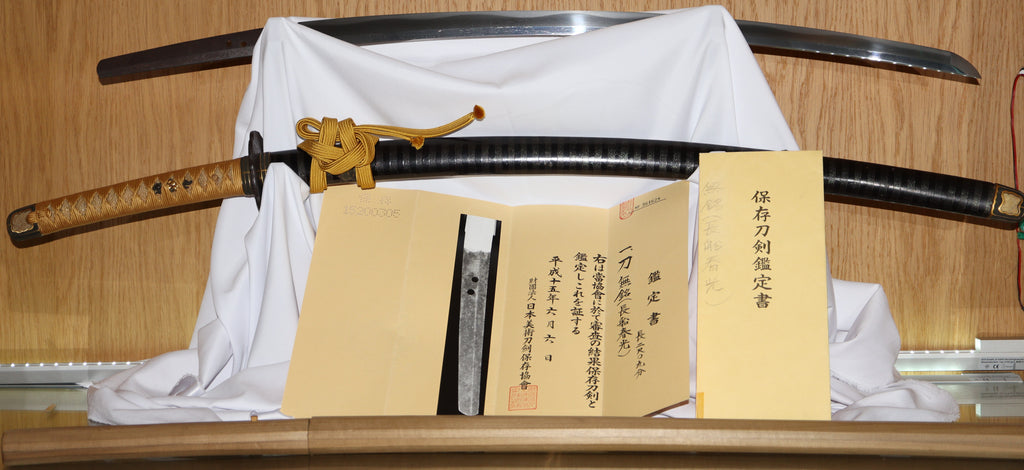 15200305
鑑定書
一、刀 無銘(長船春光)
長二尺〇九分
右は當協會に於て審査の結果保存刀剣と
鑑定しこれを証する
平成十五年六月六日
財団法人日本美術刀剣保存協會
保存刀剣鑑定書
無銘(長船春光)